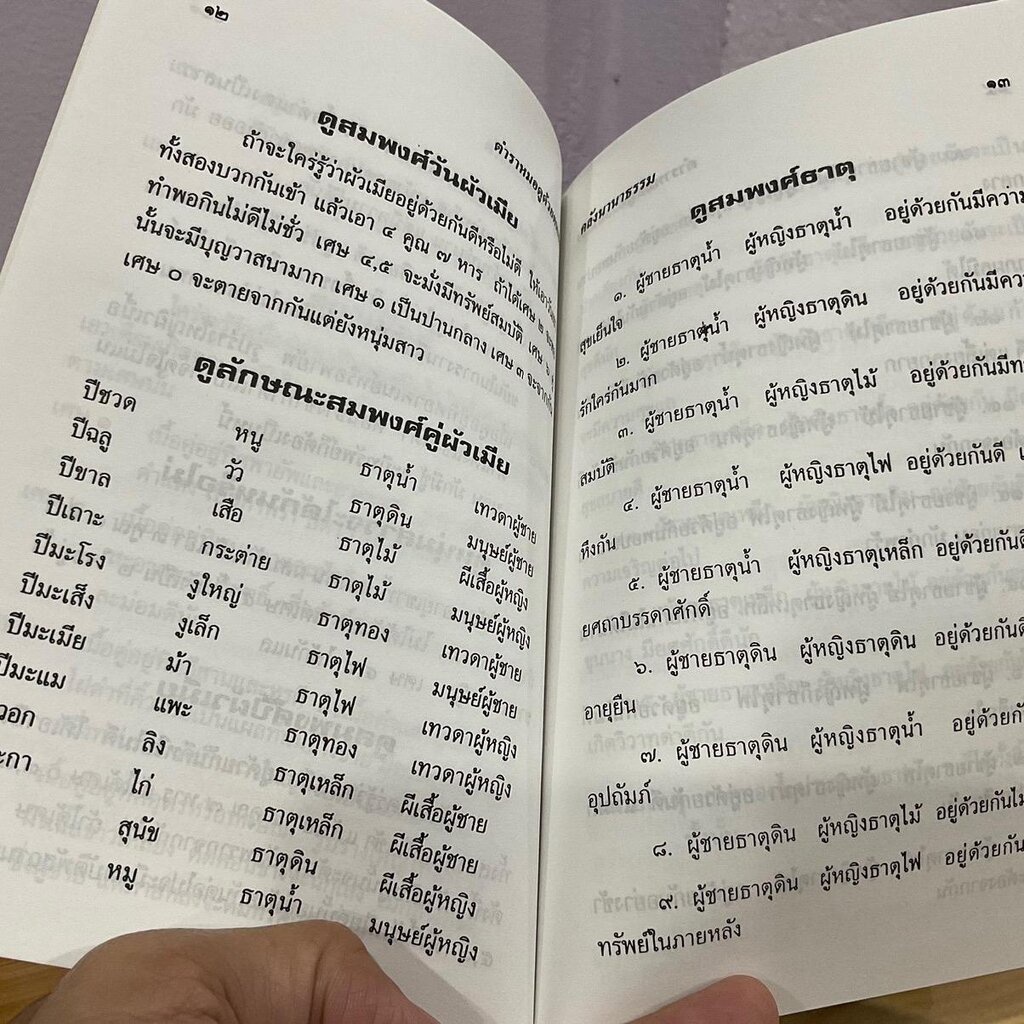 ๑๒
ดูสมพงศ์วันผัวเมีย
ถ้าจะใคร่รู้ว่าผัวเมียอยู่ด้วยกันดีหรือไม่ดี ให้เอาวัน
ทั้งสองบวกกันเข้า แล้วเอา ๔ คูณ ๗ หาร ถ้าได้เศษ ๒
ทำพอกินไม่ดีไม่ชั่ว เศษ ๔,๕ จะมั่งมีทรัพย์สมบัติ เศษ ๖
นั้นจะมีบุญวาสนามาก เศษ ๑ เป็นปานกลาง เศษ ๓ จะจาก
เศษ ๐ จะตายจากกันแต่ยังหนุ่มสาว
ดูลักษณะสมพงศ์คู่ผัวเมีย
ปีชวด หนู ธาตุน้ำ เทวดาผู้ชาย
ปีฉลู วัว ธาตุดิน มนุษย์ผู้ชาย
ปีขาล เสือ ธาตุไม้ ผีเสื้อผู้หญิง
ปีเถาะ กระต่าย ธาตุไม้ มนุษย์ผู้หญิง
ปีมะโรง งูใหญ่ ธาตุทอง เทวดาผู้ชาย
ปีมะเส็ง งูเล็ก ธาตุไฟ มนุษย์ผู้ชาย
ปีมะเมีย ม้า ธาตุไฟ เทวดาผู้หญิง
ปีมะแม แพะ ธาตุทอง เทวดาผู้หญิง
วอก ลิง ธาตุเหล็ก ผีเสื้อผู้ชาย
ะกา ไก่ ธาตุเหล็ก ผีเสื้อผู้ชาย
สุนัข ธาตุดิน ผีเสื้อผู้หญิง
หมู ธาตุน้ำ มนุษย์ผู้หญิง
๑๓
ดูสมพงศ์ธาตุ
๑. ผู้ชายธาตุน้ำ ผู้หญิงธาตุน้ำ อยู่ด้วยกันมีความ
สุขเย็นใจ
๒. ผู้ชายธาตุน้ำ ผู้หญิงธาตุดิน อยู่ด้วยกันมีความ
รักใคร่กันมาก
๓. ผู้ชายธาตุน้ำ ผู้หญิงธาตุไม้ อยู่ด้วยกันมีท
สมบัติ
๔. ผู้ชายธาตุน้ำ ผู้หญิงธาตุไฟ อยู่ด้วยกันดี
หึงกัน
๕. ผู้ชายธาตุน้ำ ผู้หญิงธาตุเหล็ก อยู่ด้วยกันดี
ยศถาบรรดาศักดิ์
๖. ผู้ชายธาตุดิน ผู้หญิงธาตุดิน อยู่ด้วยกันดี
อายุยืน
๗. ผู้ชายธาตุดิน ผู้หญิงธาตุน้ำ อยู่ด้วยกัน
อุปถัมภ์
๘. ผู้ชายธาตุดิน ผู้หญิงธาตุไม้ อยู่ด้วยกันไม่
๙. ผู้ชายธาตุดิน ผู้หญิงธาตุไฟ อยู่ด้วยกัน
ทรัพย์ในภายหลัง